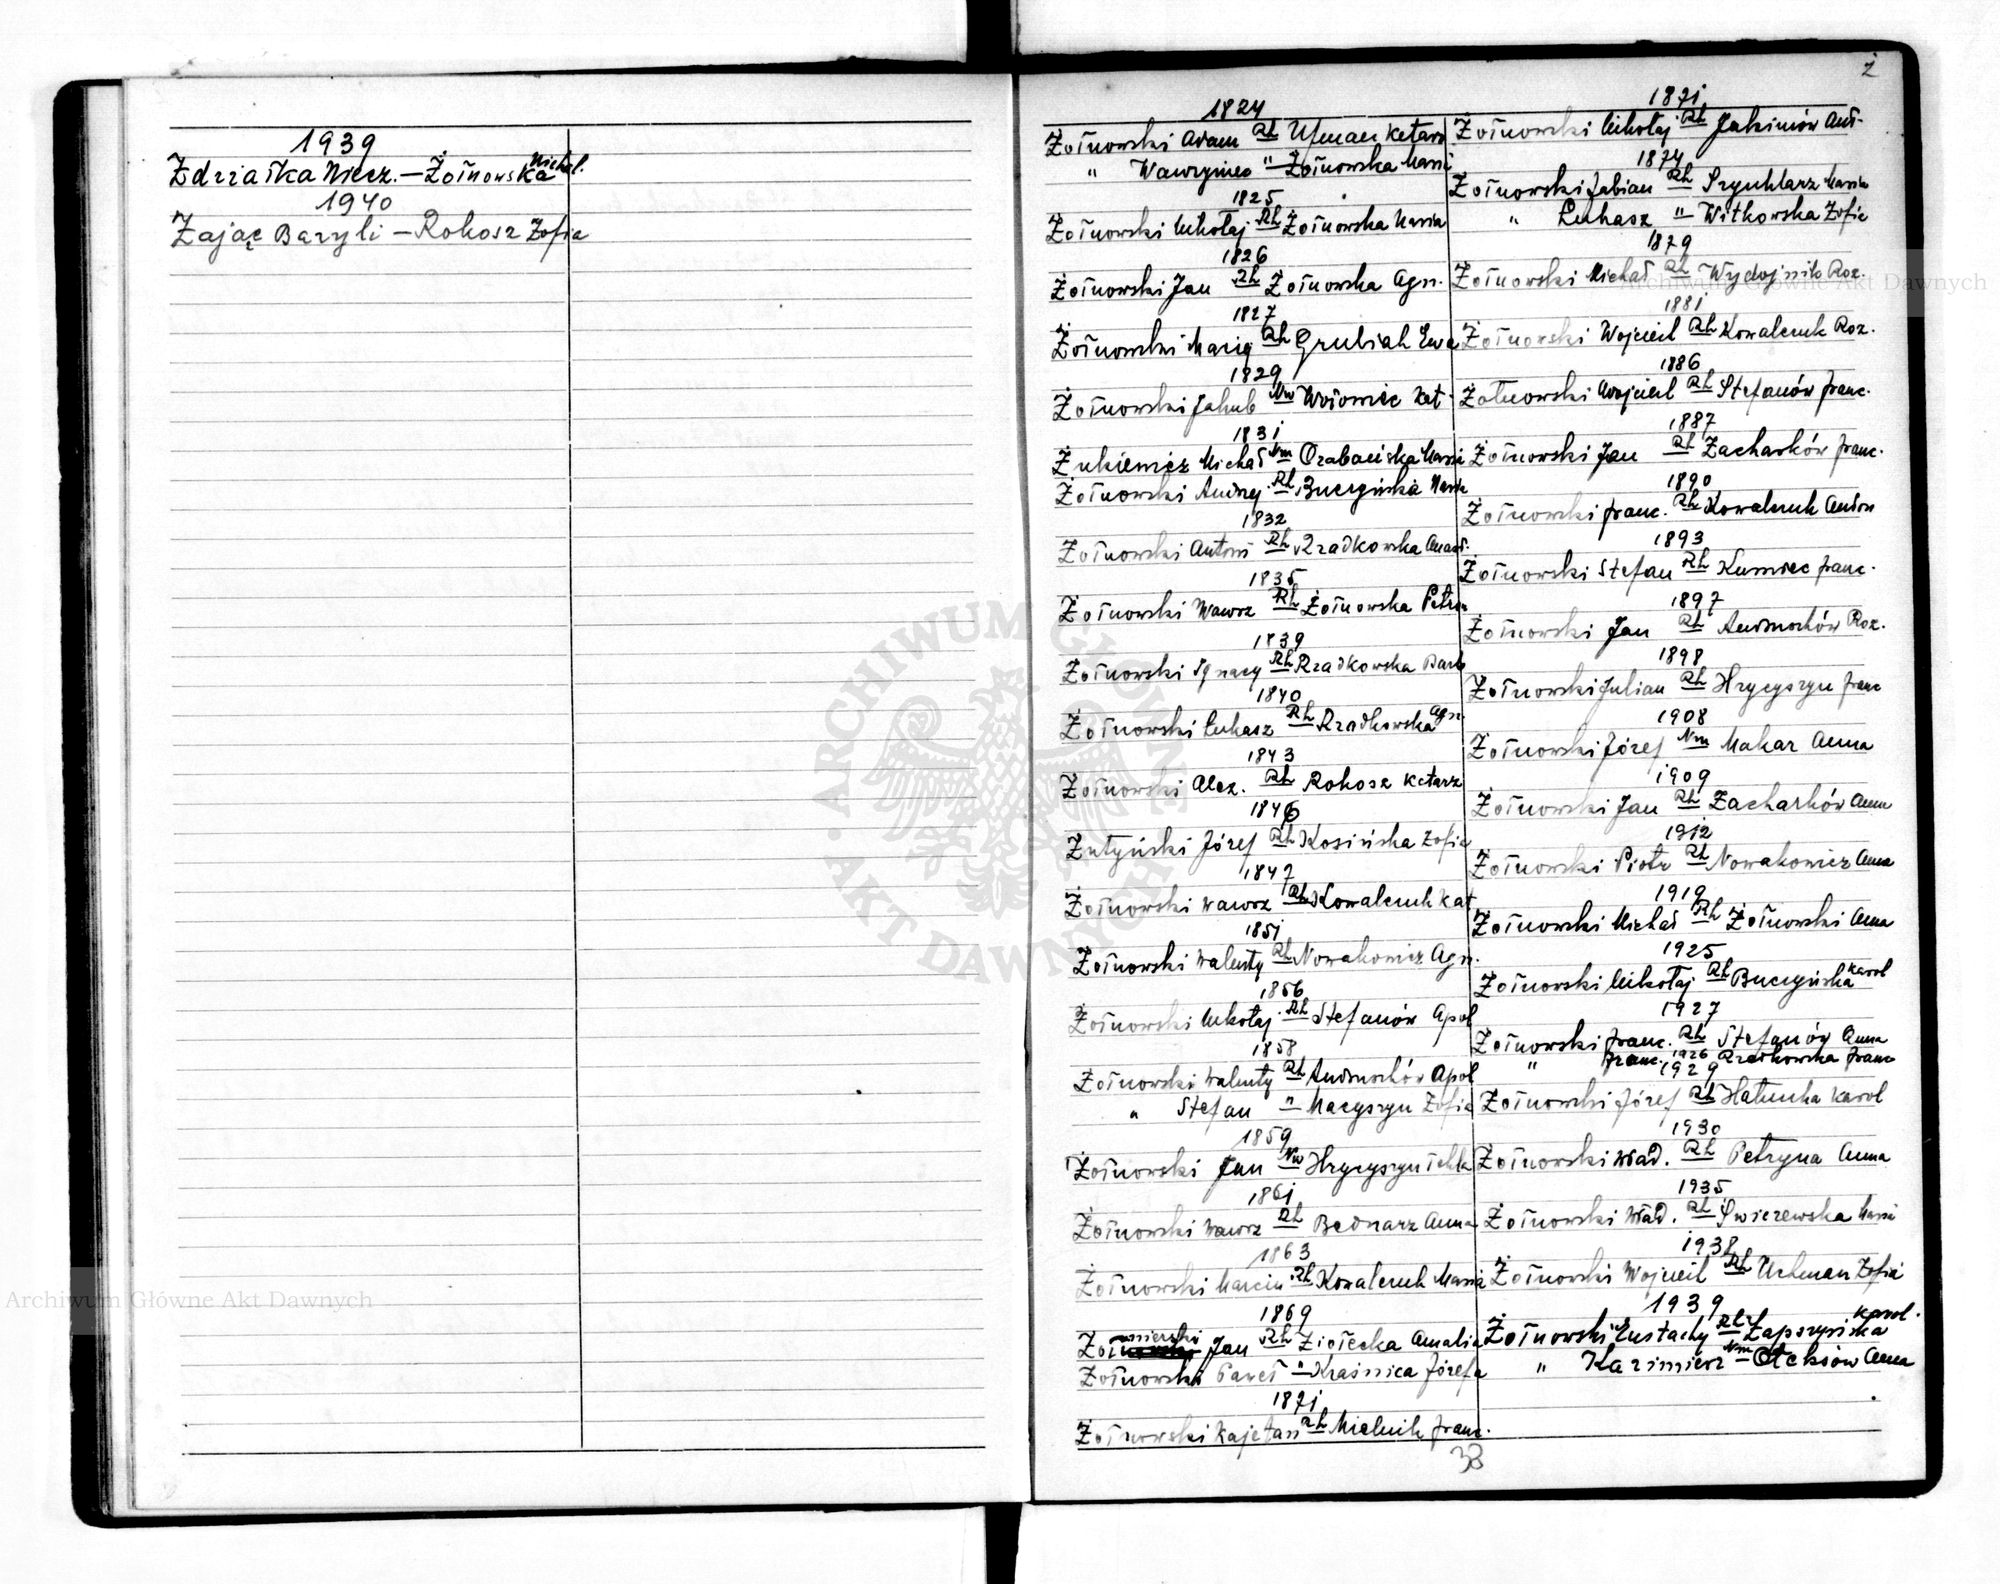 1939
Zdziałka Miecz. – Żołnowska Michal.
1940
Zając Bazyli – Rokosz Zofia
Ż
1824
Żołnowski Adam Rh Ulman Katarz
" Wawrzyniec " Żołnowska Maria
1825
Żołnowski Mikołaj Rh Żołnowska Maria
1826
Żołnowski Jan Rh Żołnowska Agn.
1827
Żołnowski Maciej Rh Grubiak Ewa
1829
Żołnowski Jakub Nm Wołowiec Kat.
1831
Żukiewicz Michał Nm Maria
Żołnowski Andrzej Rh Buczyńska Maria
1832
Żołnowski Antoni Rh Rzadkowska Anast.
1835
Żołnowski Wawrz Rh Żołnowska Petron
1839
Żołnowski Ignacy Rh Rzadkowska Barb
1840
Żołnowski Łukasz Rh Rzadkowska Agn.
1843
Żołnowski Alex. Rh Rokosz Katarz
1846
Żutyński Józef Rh Kosińska Zofia
1847
Żołnowski Wawrz Rh Kowalczuk Kat
1851
Żołnowski Walenty Rh Nowakowicz Agn.
1856
Żołnowski Mikołaj Rh Stefanów Apol
1858
Żołnowski Walenty Rh Andruchów Apol
" Stefan " Macyszyn Zofia
1859
Żołnowski Jan Nm Hrycyszyn Tekla
1861
Żołnowski Wawrz Rh Bednarz Anna
1863
Żołnowski Marcin Rh Kowalczuk Maria
1869
Żołnierski Jan Rh Ziołecka Amalia
Żołnowski Paweł " Kraśnica Józefa
1871
Żołnowski Kajetan Rh Mielnik Franc.
1871
Żołnowski Mikołaj Rh Jakimów Ant.
1874
Żołnowski Fabian Rh Szynklarz Maria
" Łukasz " Witkowska Zofia
1879
Żołnowski Michał Rh Wydojnik Roz.
1881
Żołnowski Wojciech Rh Kowalczuk Roz.
1886
Żołnowski Wojciech Rh Stefanów Franc.
1887
Żołnowski Jan Rh Zacharków Franc.
1890
Żołnowski Franc. Rh Kowalczuk Anton
1893
Żołnowski Stefan Rh Kumiec Franc.
1897
Żołnowski Jan Rh Andruchów Roz.
1898
Żołnowski Julian Rh Hrycyszyn Franc
1908
Żołnowski Józef Nm Makar Anna
1909
Żołnowski Jan Rh Zacharków Anna
1912
Żołnowski Piotr Rh Nowakowicz Anna
1919
Żołnowski Michał Rh Żołnowski Anna
1925
Żołnowski Mikołaj Rh Buczyńska Karol
1927
Żołnowski Franc. Rh Stefanów Anna
" Franc. 1926 Rzadkowska Franc
1929
Żołnowski Józef Rh Hałuncha Karol
1930
Żołnowski Wład. Rh Petryna Anna
1935
Żołnowski Wład. Rh Świczewska Maria
1938
Żołnowski Wojciech Rh Uchman Zofia
1939
Żołnowski Eustachy Rh Zapszyńska Karol.
" Kazimierz Nm Oleksów Anna
38
ARCHIWUM GŁÓWNE AKT DAWNYCH
Archiwum Główne Akt Dawnych
Archiwum Główne Akt Dawnych